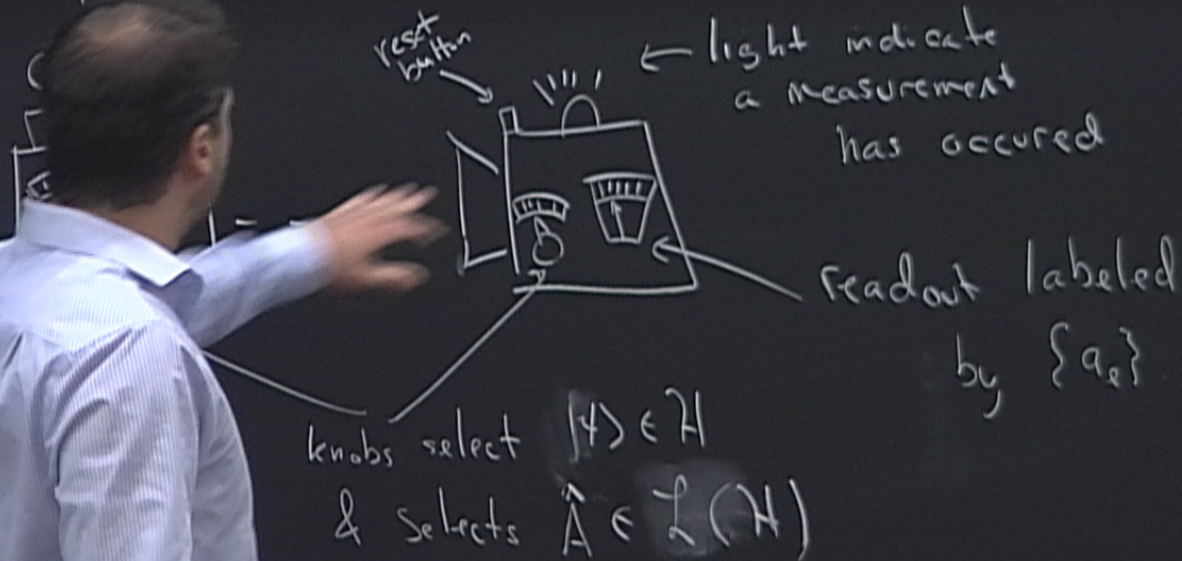 reset
button
← light indicate
a measurement
has occured
readout labeled
by {aₑ}
knobs select |ψ⟩ ∈ ℋ
& selects Â ∈ ℒ(ℋ)